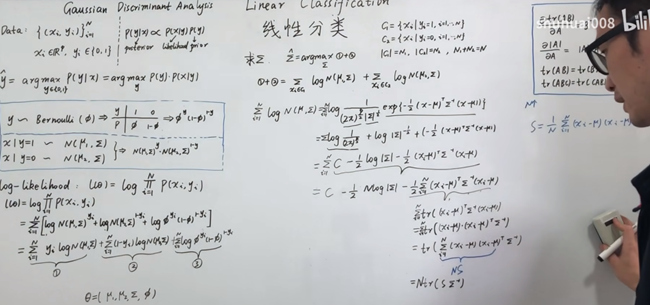 Gaussian Discriminant Analysis
Data: {(xᵢ, yᵢ)}ᵢ₌₁ᴺ
xᵢ∈ℝᵖ, yᵢ∈{0,1}
P(y|x) ∝ P(x|y)P(y)
posterior likelihood prior
ŷ = argmax P(y|x) = argmax P(y)·P(x|y)
y∈{0,1} y
y ~ Bernoulli (φ) ⇒ y 1 0
P φ 1-φ ⇒ φʸ(1-φ)¹⁻ʸ
x|y=1 ~ N(μ₁, Σ)
x|y=0 ~ N(μ₂, Σ) ⇒ N(μ₁,Σ)ʸ·N(μ₂,Σ)¹⁻ʸ
log-likelihood: ℓ(θ) = log ∏ᵢ₌₁ᴺ P(xᵢ, yᵢ)
ℓ(θ) = log ∏ᵢ₌₁ᴺ P(xᵢ, yᵢ)
= Σᵢ₌₁ᴺ [log N(μ₁,Σ)ʸⁱ + log N(μ₂,Σ)¹⁻ʸⁱ + log φʸⁱ(1-φ)¹⁻ʸⁱ]
= Σᵢ₌₁ᴺ yᵢ log N(μ₁,Σ) + Σᵢ₌₁ᴺ (1-yᵢ) log N(μ₂,Σ) + Σᵢ₌₁ᴺ log φʸⁱ(1-φ)¹⁻ʸⁱ
① ② ③
θ = (μ₁, μ₂, Σ, φ)
Linear Classification
线性分类
C₁ = {xᵢ | yᵢ=1, i=1,…,N}
C₂ = {xᵢ | yᵢ=0, i=1,…,N}
|C₁|=N₁, |C₂|=N₂, N₁+N₂=N
求Σ. Σ̂ = argmax ①+②
Σ
①+② = Σ log N(μ₁,Σ) + Σ log N(μ₂,Σ)
xᵢ∈C₁ xᵢ∈C₂
Σᵢ₌₁ᴺ log N(μ,Σ) = Σᵢ₌₁ᴺ log 1/((2π)^{p/2}|Σ|^{1/2}) exp{-½(xᵢ-μ)ᵀΣ⁻¹(xᵢ-μ)}
= Σ log 1/(2π)^{p/2} + log|Σ|^{-1/2} + (-½(xᵢ-μ)ᵀΣ⁻¹(xᵢ-μ))
= Σᵢ₌₁ᴺ C - ½ log|Σ| - ½(xᵢ-μ)ᵀΣ⁻¹(xᵢ-μ)
= C - ½ N log|Σ| - ½ Σᵢ₌₁ᴺ (xᵢ-μ)ᵀΣ⁻¹(xᵢ-μ)
Σᵢ₌₁ᴺ tr((xᵢ-μ)ᵀΣ⁻¹(xᵢ-μ))
= Σ tr((xᵢ-μ)(xᵢ-μ)ᵀΣ⁻¹)
= tr(Σᵢ₌₁ᴺ (xᵢ-μ)(xᵢ-μ)ᵀΣ⁻¹)
NS
= N tr(SΣ⁻¹)
shuhuai008
bili
∂tr(AB)
∂A
∂|A|
∂A = |A
tr(AB) =
tr(ABC) = tr(CAB
M
S = 1/N Σᵢ₌₁ᴺ (xᵢ-μ)(xᵢ-μ